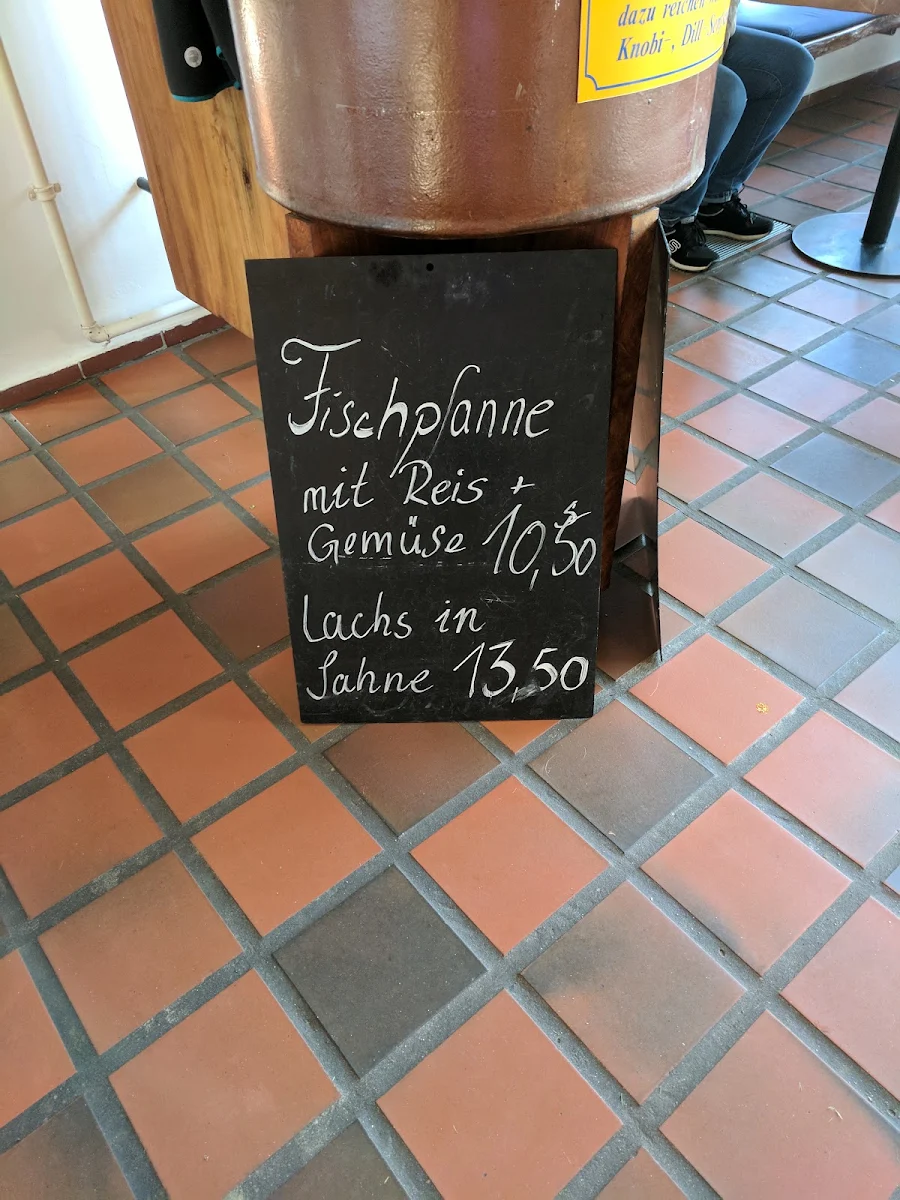 dazu reichen
Knobi-, Dill-
Fischpfanne
mit Reis +
Gemüse 10,50
Lachs in
Sahne 13,50